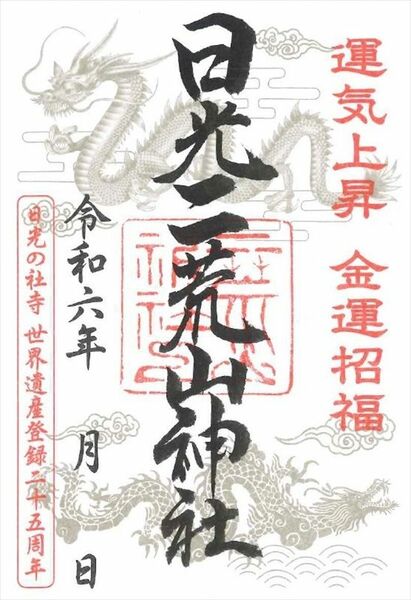 運気上昇 金運招福
日光二荒山神社
令和六年 月 日
日光の社寺 世界遺産登録二十五周年